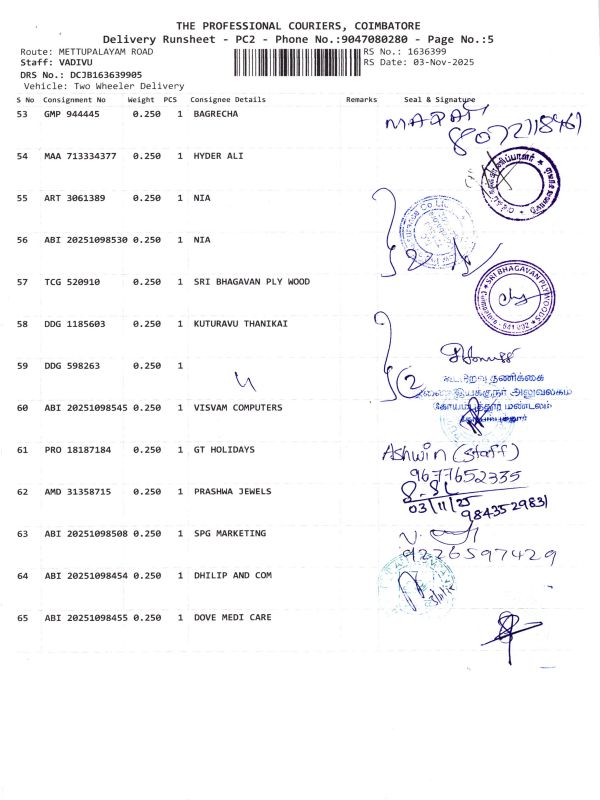 THE PROFESSIONAL COURIERS, COIMBATORE
Delivery Runsheet - PC2 - Phone No.:9047080280 - Page No.:5
Route: METTUPALAYAM ROAD RS No.: 1636399
Staff: VADIVU RS Date: 03-Nov-2025
DRS No.: DCJB163639905
Vehicle: Two Wheeler Delivery
S No Consignment No Weight PCS Consignee Details Remarks Seal & Signature
53 GMP 944445 0.250 1 BAGRECHA
8072118461
54 MAA 713334377 0.250 1 HYDER ALI
55 ART 3061389 0.250 1 NIA
56 ABI 20251098530 0.250 1 NIA
57 TCG 520910 0.250 1 SRI BHAGAVAN PLY WOOD
SRI BHAGAVAN PLYWOODS
58 DDG 1185603 0.250 1 KUTURAVU THANIKAI
59 DDG 598263 0.250 1
2
கூட்டுறவு தணிக்கை
அலுவலகம்
மண்டலம்
60 ABI 20251098545 0.250 1 VISVAM COMPUTERS
61 PRO 18187184 0.250 1 GT HOLIDAYS
Ashwin (staff)
9677652335
62 AMD 31358715 0.250 1 PRASHWA JEWELS
03/11/25
9843529831
63 ABI 20251098508 0.250 1 SPG MARKETING
9226597429
64 ABI 20251098454 0.250 1 DHILIP AND COM
65 ABI 20251098455 0.250 1 DOVE MEDI CARE